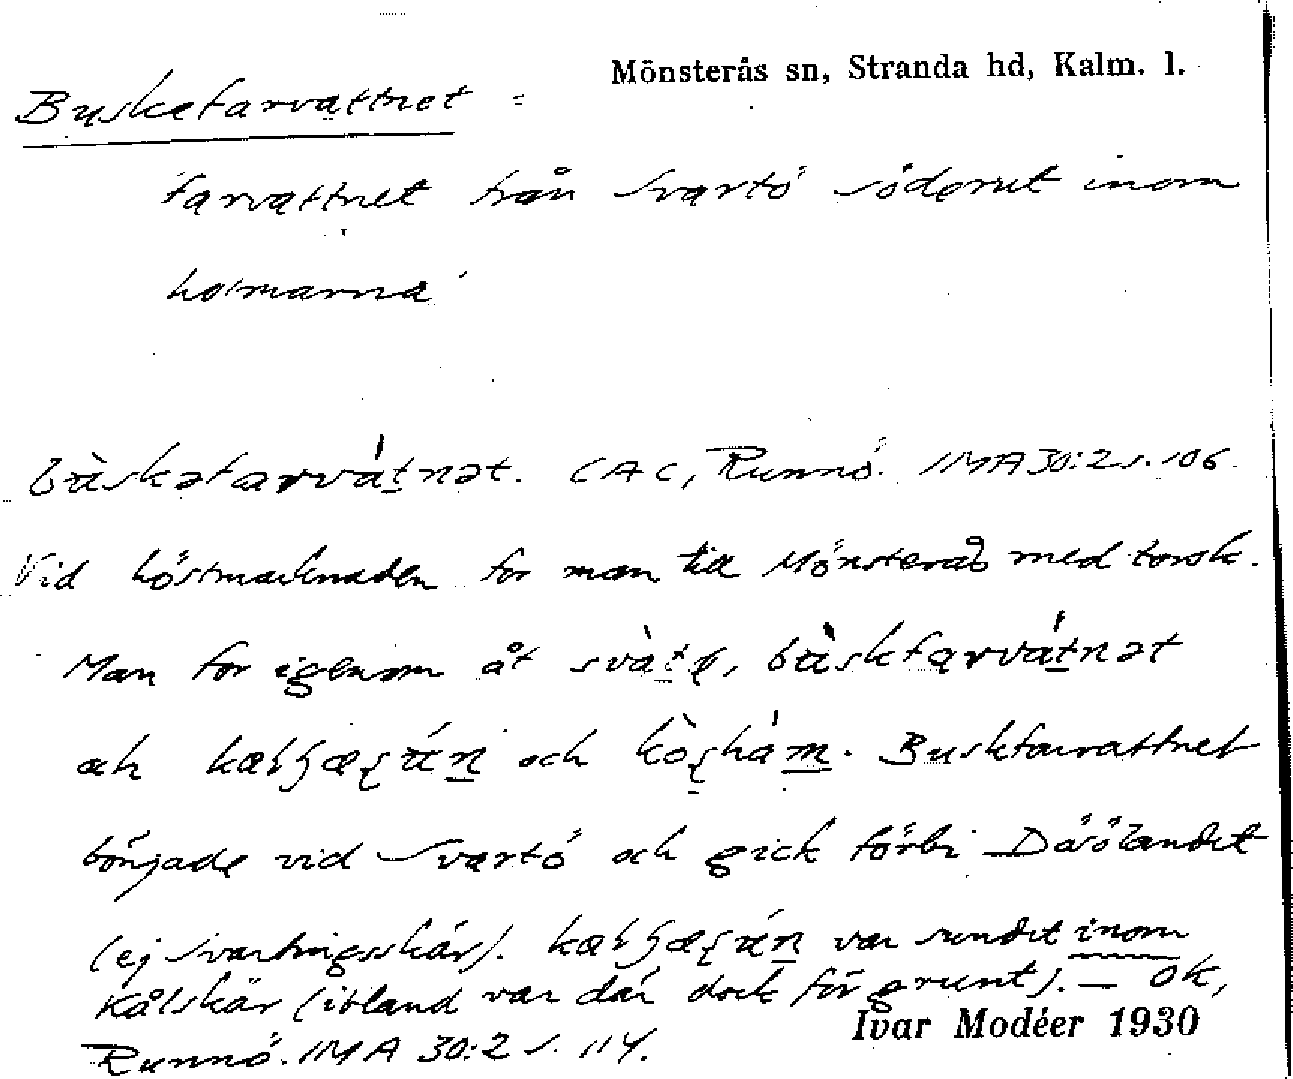 Mönsterås sn, Stranda hd, Kalm. l.
Buskefarvattnet =
farvattnet från Svartö söderut inom
holmarna
bùskəfarvátnət. CAC, Runnö. IMA 30:2 s. 106.
Vid höstmarknaden for man till Mönsterås med torsk.
Man for igenom åt bùskfarvátnət
och och Buskfarvattnet
började vid Svartö och gick förbi Dåsölandet
(ej Svartingsskär). var sundet inom
Kålskär (ibland var där dock för grunt). — OK,
Ivar Modéer 1930
Runnö. IMA 30:2 s. 114.